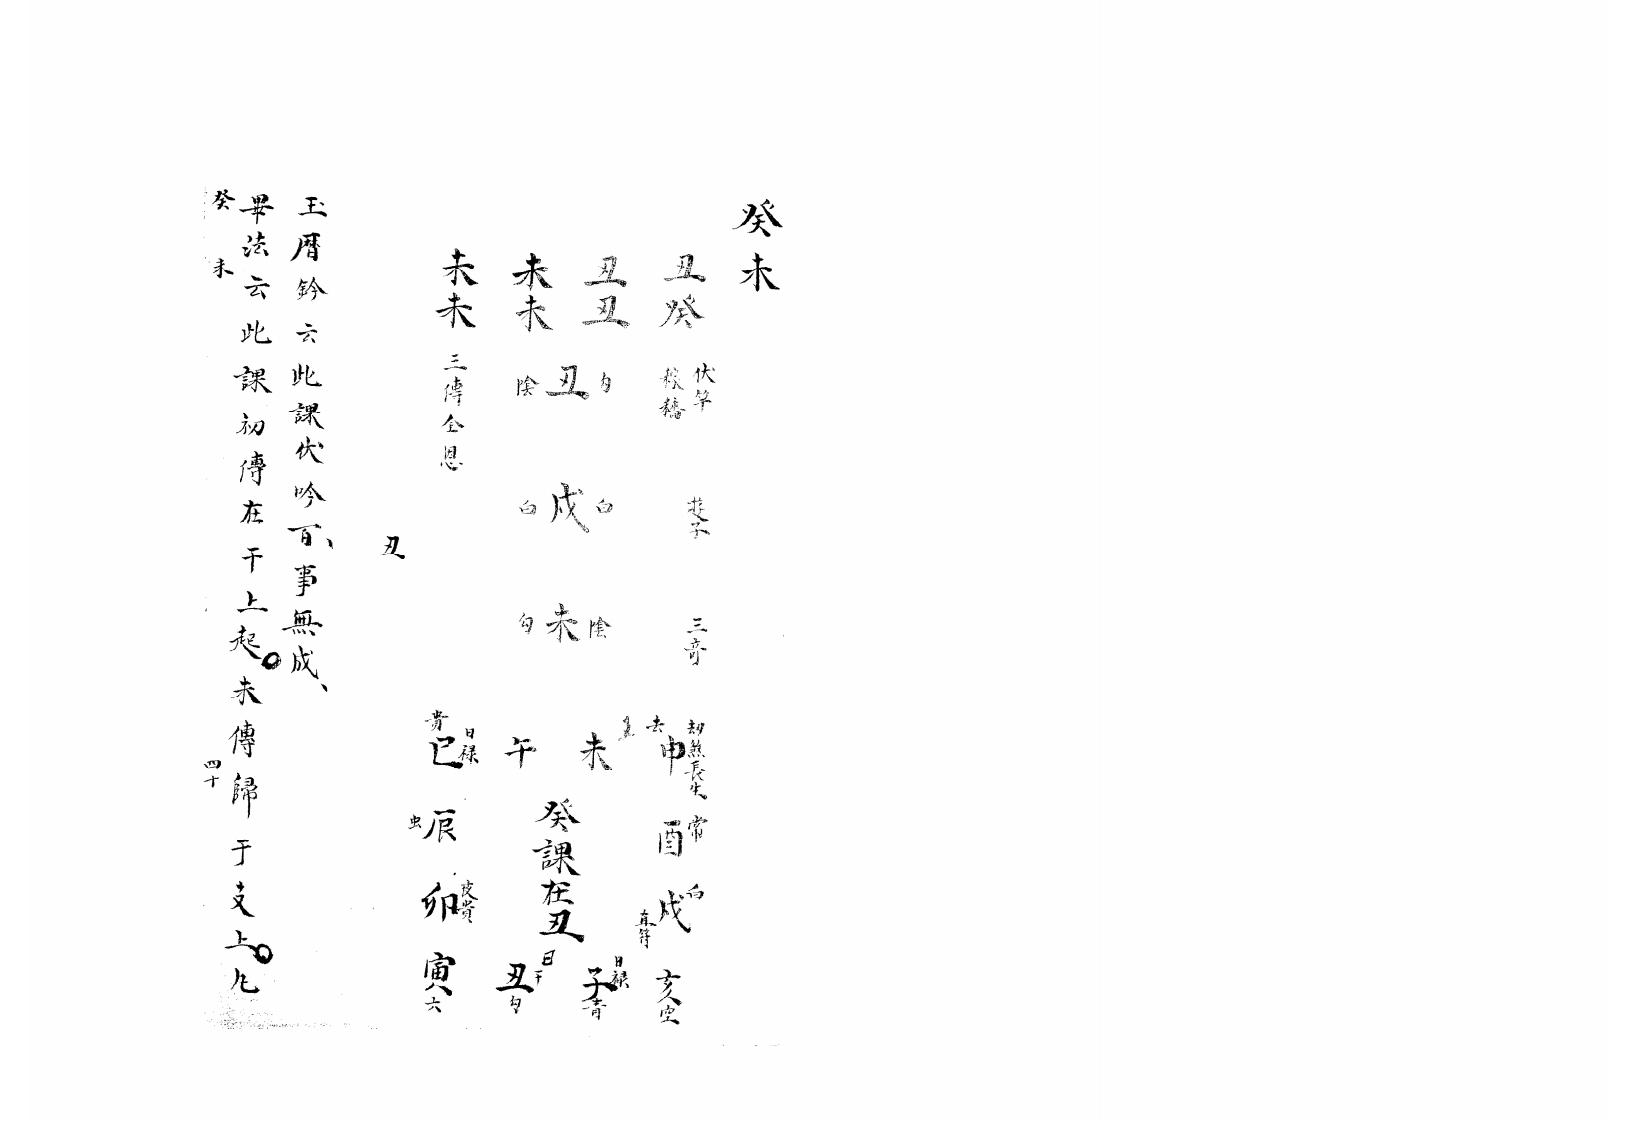 癸未
丑癸
丑丑
未未
未未
伏吟
稼穡
勾丑陰
三傳全恩
白戌白
三奇
陰未勾
劫煞長生
申
去
未
午
日禄
巳
貴
常
酉
白
戌
直符
亥空
日禄
子青
日干
丑勾
寅六
夜貴
卯
辰
癸課在丑
丑
玉曆鈐云此課伏吟百、事無成、
畢法云此課初傳在干上起。未傳歸于支上。凡
癸未
四十